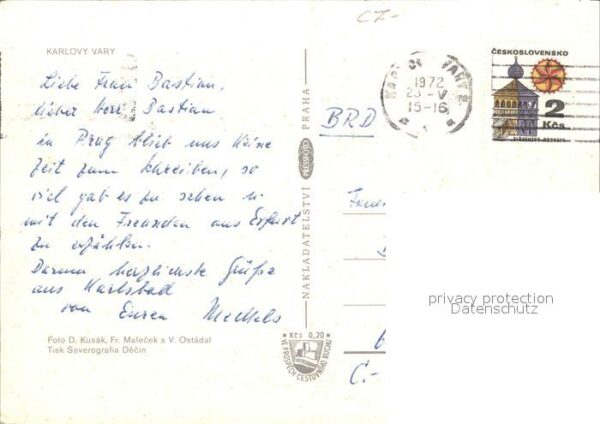 CZ-
KARLOVY VARY
Liebe Frau Bastian,
lieber Herr Bastian
in Prag blieb uns keine
Zeit zum Schreiben, so
viel gab es zu sehen u
mit den Freunden aus Erfurt
zu erzählen.
Darum herzlichste Grüße
aus Karlsbad
von Euren
Foto D. Kusák, Fr. Maleček a V. Ostádal
Tisk Severografia Děčín
NAKLADATELSTVÍ PRESSFOTO PRAHA
Kčs 0,20
VE PROSPĚCH CESTOVNÍHO RUCHU
KARLOVY VARY
1972
23-V
15-16
ČESKOSLOVENSKO
2
Kčs
BRD
C.-
privacy protection
Datenschutz